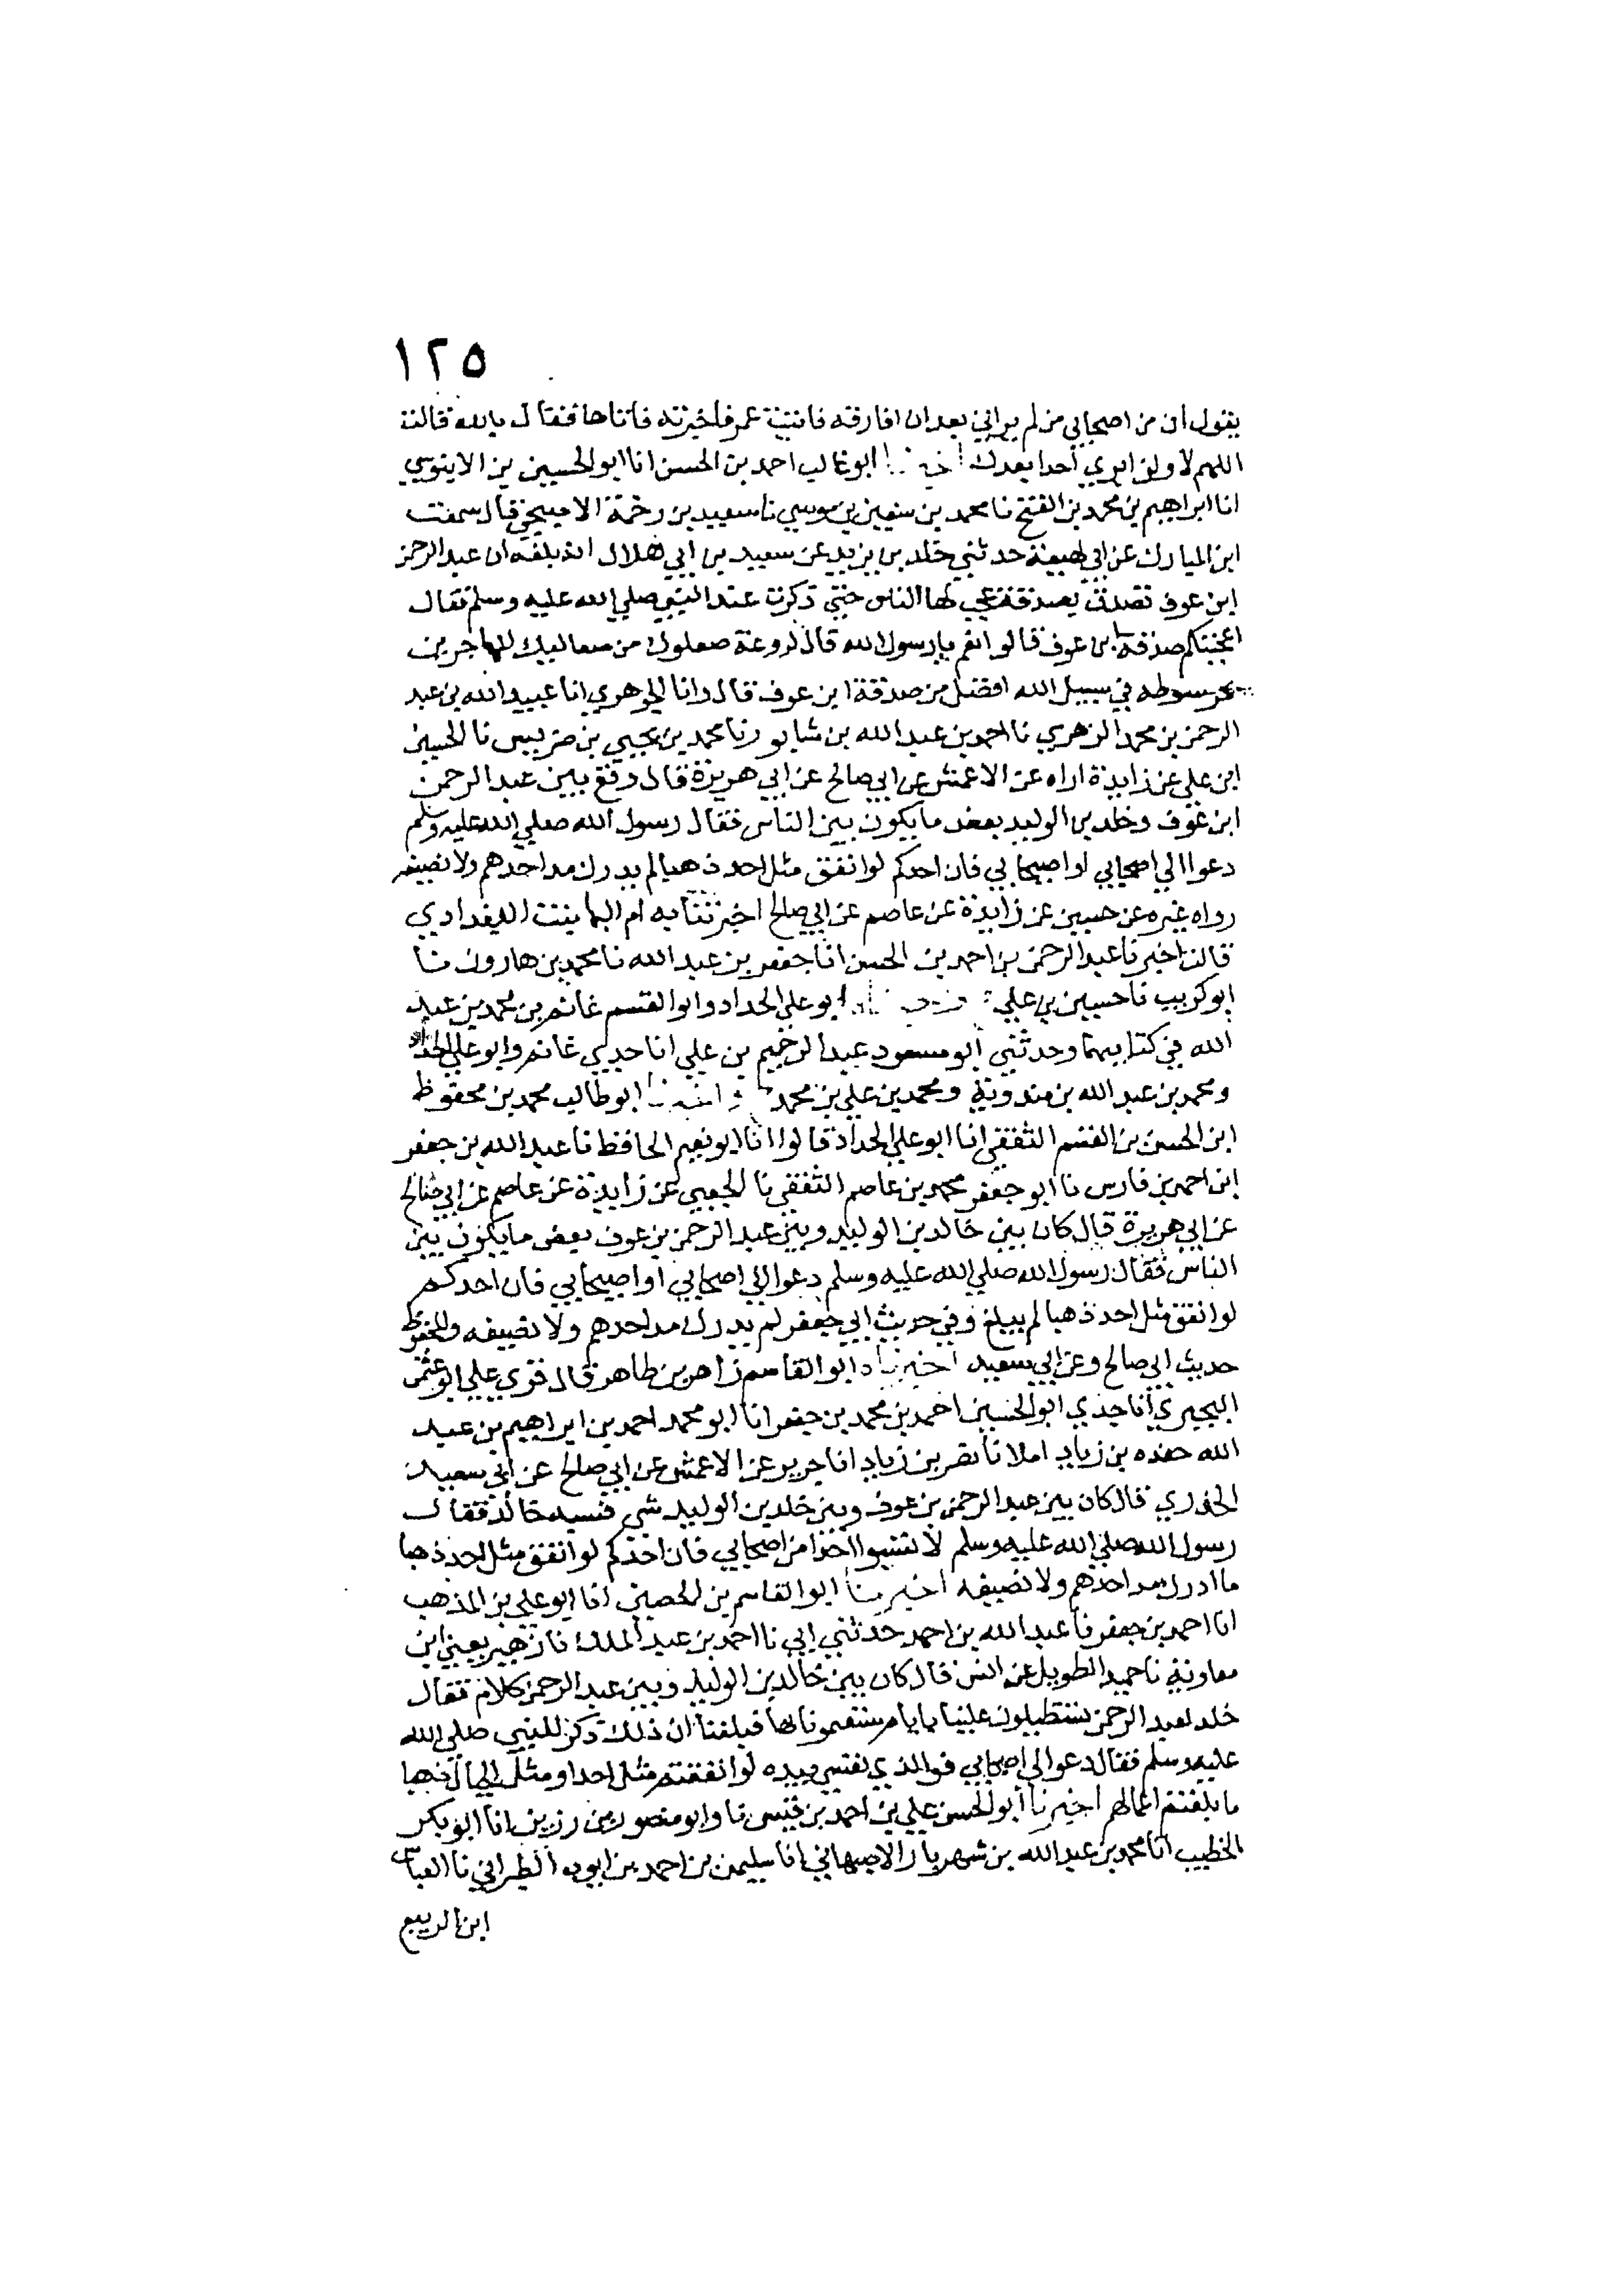 ١٢٥
يقول ان من اصحابي من لم يراني بعد ان افارقه فاتيت عمر فاخبرته فاتاها فقال بالله قالت
اللهم لا ولن ابري أحدا بعدك ابو غالب احمد بن الحسن انا ابو الحسين بن الابنوسي
انا ابراهيم بن محمد بن الفتح نا محمد بن سفين بن موسي نا سعيد بن رحمة الاصبحي قال سمعت
ابن المبارك عن ابي لهيعة حدثني خلد بن يزيد عن سعيد بن ابي هلال انه بلغه ان عبد الرحمن
ابن عوف تصدق بصدقة عجب لها الناس حتي ذكرت عند النبي صلي الله عليه وسلم فقال
اعجبتكم صدقة ابن عوف قالوا نعم يا رسول الله قال لروعة صعلوك من صعاليك المهاجرين
يجر سوطه في سبيل الله افضل من صدقة ابن عوف قال وانا الجوهري انا عبيد الله بن عبد
الرحمن بن محمد الزهري نا احمد بن عبد الله بن شابور نا محمد بن يحيي بن ضريس نا الحسين
ابن علي عن زايدة اراه عن الاعمش عن ابي صالح عن ابي هريرة قال وقع بين عبد الرحمن
ابن عوف وخلد بن الوليد بعض ما يكون بين الناس فقال رسول الله صلي الله عليه وسلم
دعوا الي اصحابي او اصيحابي فان احدكم لو انفق مثل احد ذهبا لم يدرك مد احدهم ولا نصيفه
رواه غيره عن حسين عن زايدة عن عاصم عن ابي صالح اخبرتنا به ام البها بنت البغدادي
قالت اخبرنا عبد الرحمن بن احمد بن الحسن انا جعفر بن عبد الله نا محمد بن هارون نا
ابو كريب نا حسين بن علي ابو علي الحداد وابو القسم غانم بن محمد بن عبيد
الله في كتابيهما وحدثني أبو مسعود عبد الرحيم بن علي انا جدي غانم وابو علي الحداد
ومحمد بن عبد الله بن مندويه ومحمد بن علي بن محمد ابو طالب محمد بن محفوظ
ابن الحسن بن القسم الثقفي انا ابو علي الحداد قالوا انا ابو نعيم الحافظ نا عبد الله بن جعفر
ابن احمد بن فارس نا ابو جعفر محمد بن عاصم الثقفي نا الجعفي عن زايدة عن عاصم عن ابي صالح
عن ابي هريرة قال كان بين خالد بن الوليد وبين عبد الرحمن بن عوف بعض ما يكون بين
الناس فقال رسول الله صلي الله عليه وسلم دعوا الي اصحابي او اصيحابي فان احدكم
لو انفق مثل احد ذهبا لم يبلغ وفي حديث ابي جعفر لم يدرك مد احدهم ولا نصيفه والمحفوظ
حديث ابي صالح وعن ابي سعيد اخبرنا ابو القاسم زاهر بن طاهر قال قري علي ابو عثمن
البحيري أنا جدي ابو الحسين احمد بن محمد بن جعفر انا ابو محمد احمد بن ابراهيم بن عبد
الله حفده بن زياد املا نا نصر بن زياد انا جرير عن الاعمش عن ابي صالح عن ابي سعيد
الخدري قال كان بين عبد الرحمن بن عوف وبين خلد بن الوليد شي فسبه خالد فقال
رسول الله صلي الله عليه وسلم لا تسبوا احدا من اصحابي فان احدكم لو انفق مثل احد ذهبا
ما ادرك مد احدهم ولا نصيفه اخبرنا ابو القاسم بن الحصين انا ابو علي بن المذهب
انا احمد بن جعفر نا عبد الله بن احمد حدثني ابي نا احمد بن عبد الملك نا زهير يعني ابن
معاوية نا حميد الطويل عن انس قال كان بين خالد بن الوليد وبين عبد الرحمن كلام فقال
خلد لعبد الرحمن تستطيلون علينا بايام سبقتمونا بها فبلغنا ان ذلك ذكر للنبي صلي الله
عليه وسلم فقال دعوا الي اصحابي فوالذي نفسي بيده لو انفقتم مثل احد او مثل الجبال ذهبا
ما بلغتم اعمالهم اخبرنا أبو الحسن علي بن احمد بن قبيس نا وابو منصور بن زريق انا ابو بكر
الخطيب انا محمد بن عبد الله بن شهريار الاصبهاني انا سليمن بن احمد بن ايوب الطبراني نا العباس
ابن الربيع